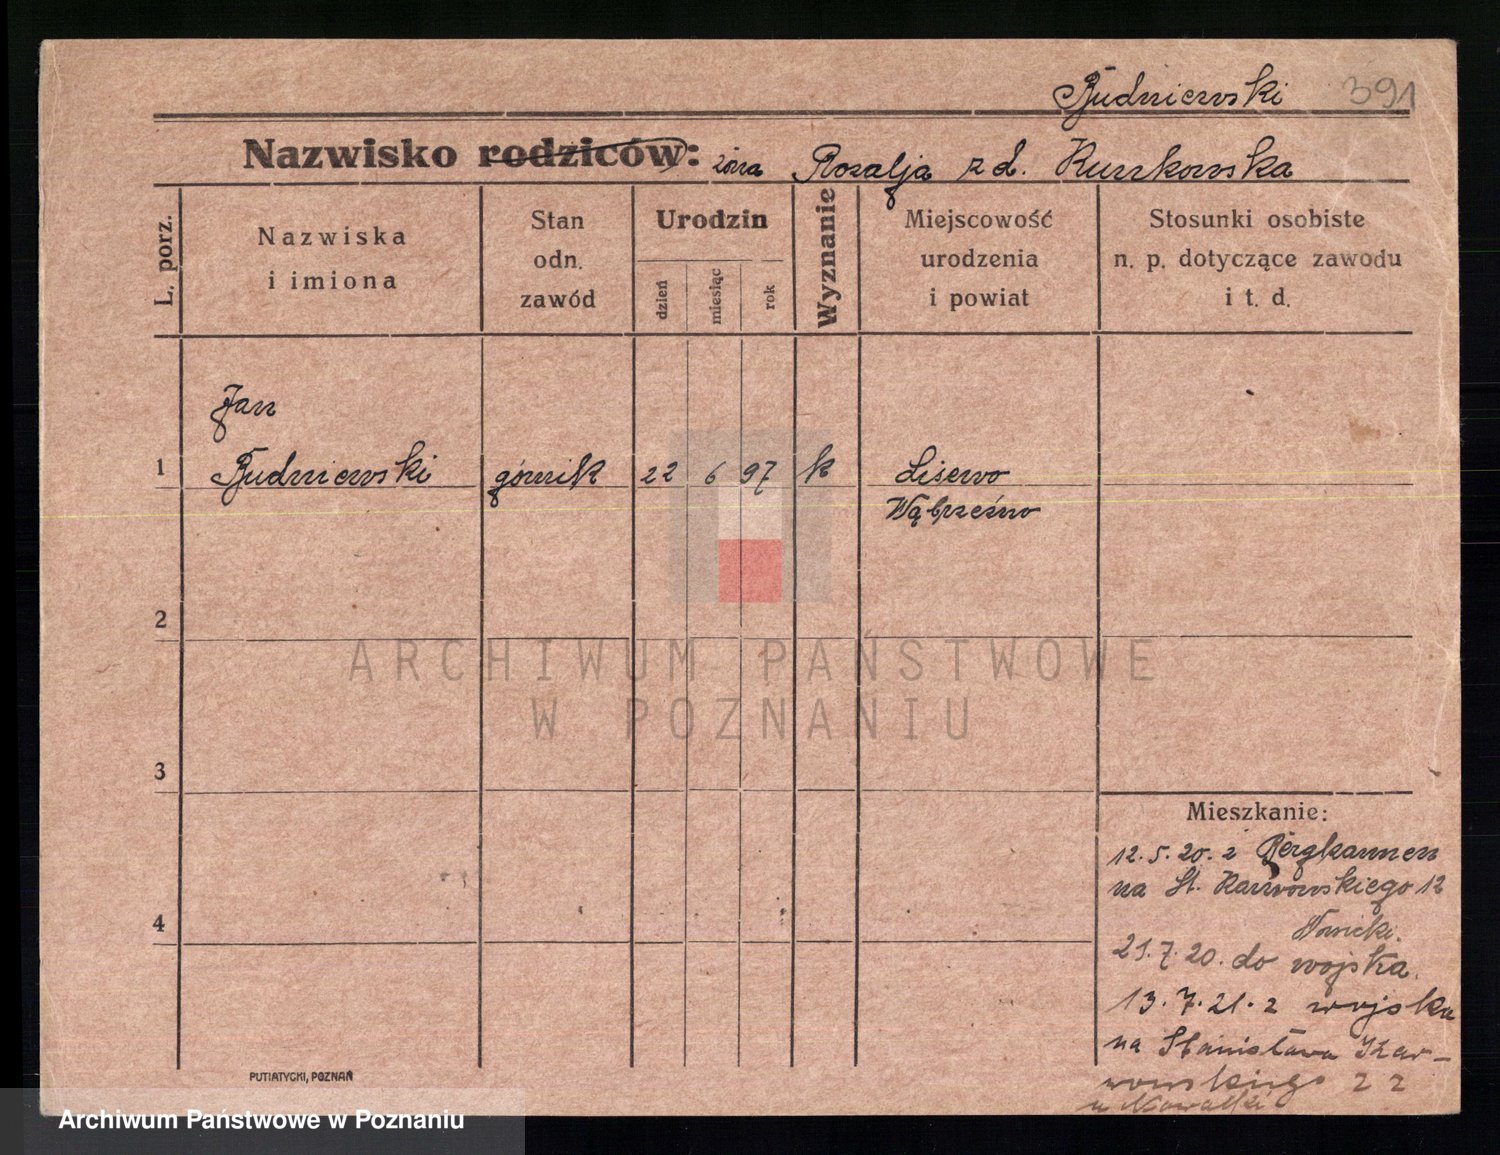 Rudniewski 391
Nazwisko rodziców: żona Rozalja z d. Kurzkowska
L. porz.
Nazwiska
i imiona
Stan
odn.
zawód
Urodzin
dzień
miesiąc
rok
Wyznanie
Miejscowość
urodzenia
i powiat
Stosunki osobiste
n. p. dotyczące zawodu
i t. d.
Jan
1 Rudniewski górnik 22 6 97 k Lisewo
Wąbrzeźno
2
ARCHIWUM PAŃSTWOWE
W POZNANIU
3
Mieszkanie:
12.5.20. z Bergkamen
na St. Karwowskiego 12
4
Nowicki.
21.7.20. do wojska.
13.7.21. z wojska
na Stanisława Kar-
wowskiego 22
u Nowacki
PUTIATYCKI, POZNAŃ
Archiwum Państwowe w Poznaniu